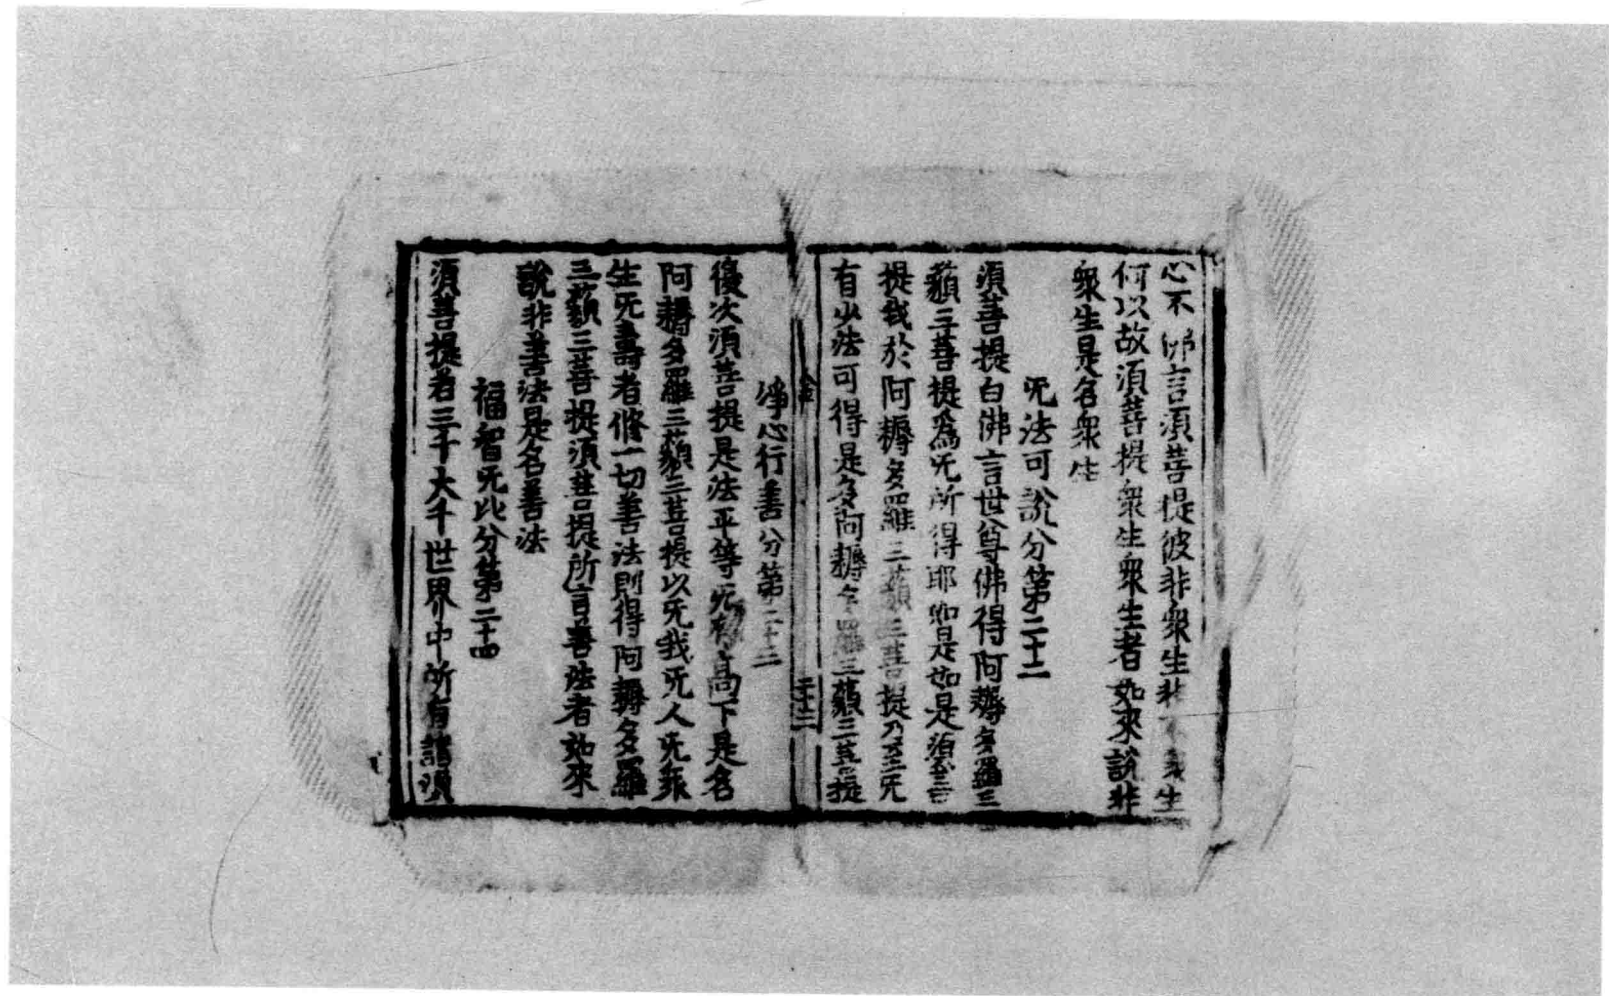 心不佛言須菩提彼非衆生非不衆生
何以故須菩提衆生衆生者如來說非
衆生是名衆生
无法可說分第二十二
須菩提白佛言世尊佛得阿耨多羅三
藐三菩提為无所得耶如是如是須菩
提我於阿耨多羅三藐三菩提乃至无
有少法可得是名阿耨多羅三藐三菩提
二十二
淨心行善分第二十三
復次須菩提是法平等无有高下是名
阿耨多羅三藐三菩提以无我无人无衆
生无壽者修一切善法則得阿耨多羅
三藐三菩提須菩提所言善法者如來
說非善法是名善法
福智无比分第二十四
須菩提若三千大千世界中所有諸須